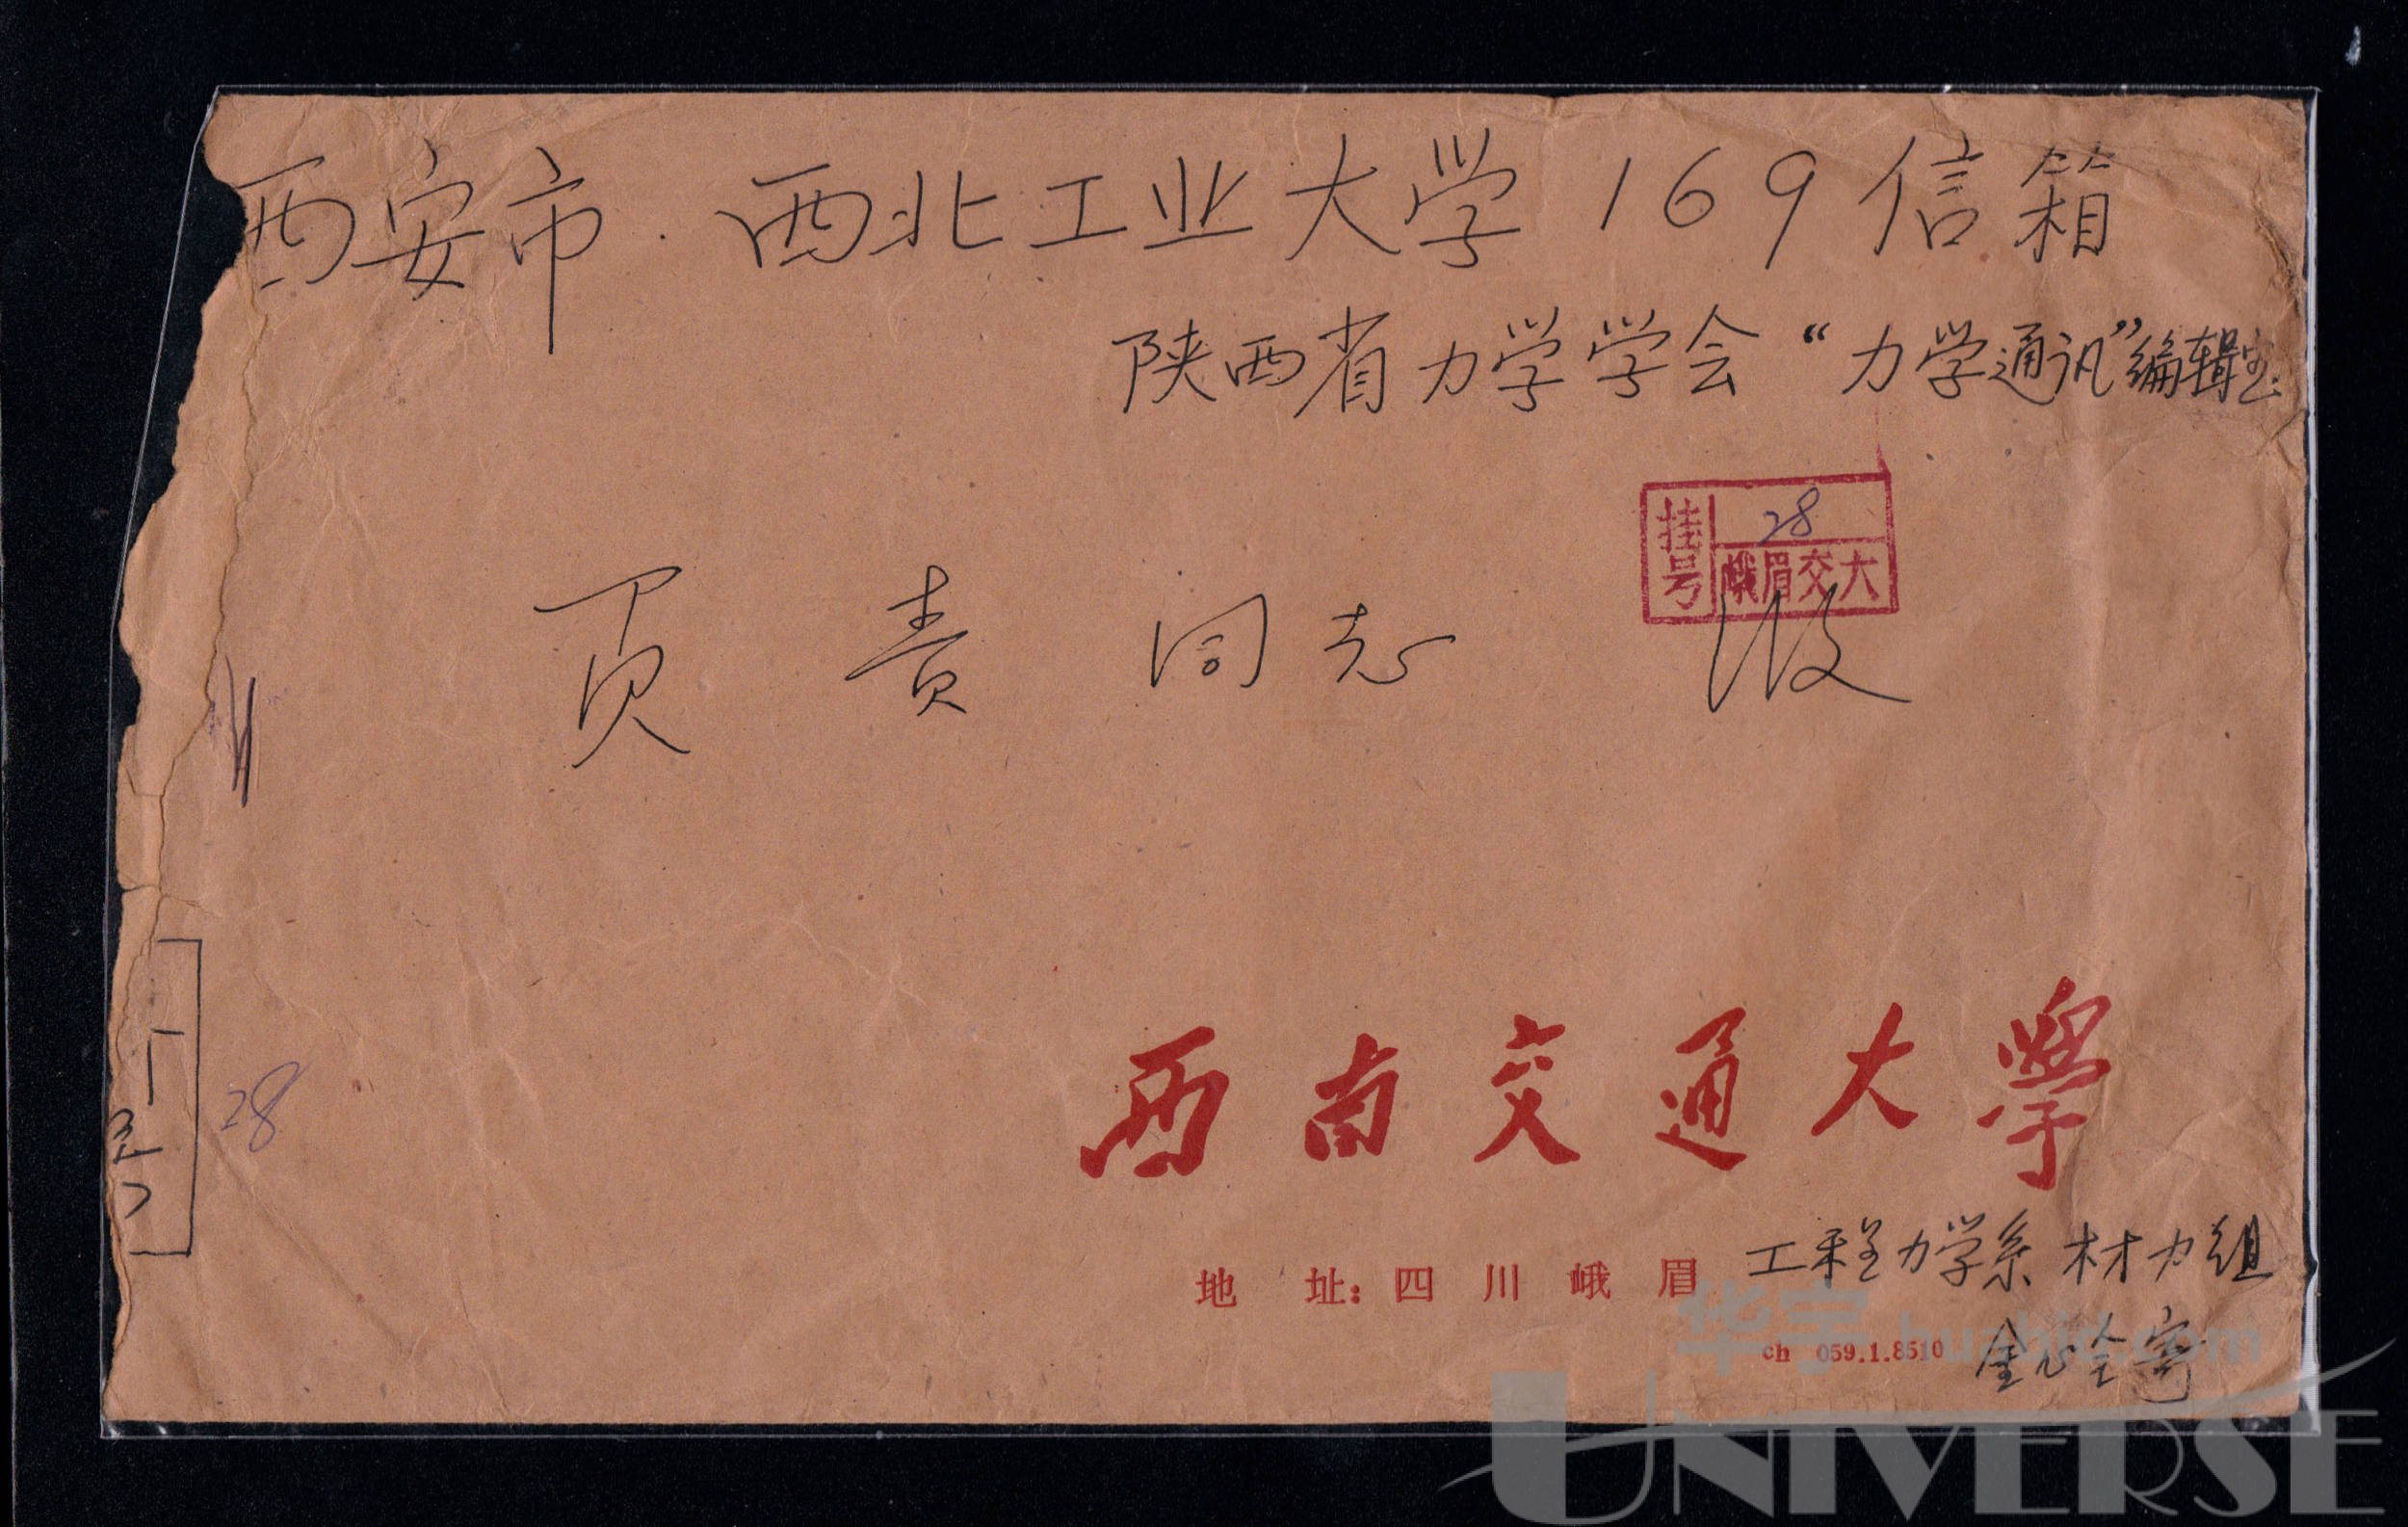 西安市 西北工业大学 169 信箱
陕西省力学学会“力学通讯”编辑室
挂号 28
峨眉交大
责 同志 收
28
西南交通大學
地 址: 四 川 峨 眉
工程力学系 材力组
ch 059.1.8510
金心全寄
华宇 huabid.com
UNIVERSE